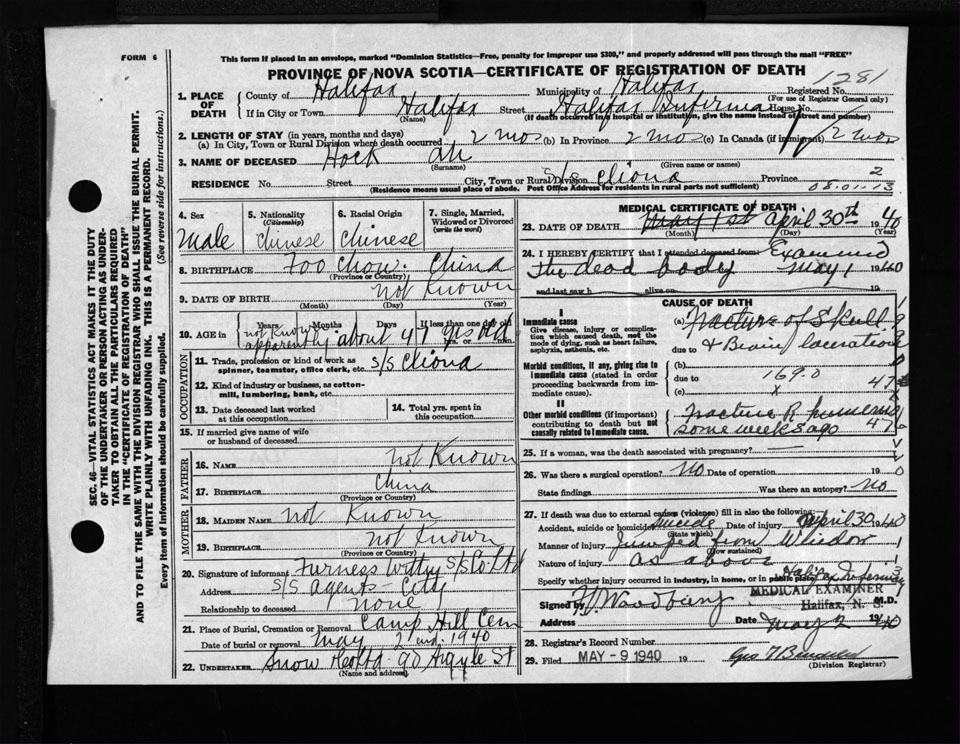 FORM 6
This form if placed in an envelope, marked "Dominion Statistics—Free, penalty for improper use $300," and properly addressed will pass through the mail "FREE"
PROVINCE OF NOVA SCOTIA—CERTIFICATE OF REGISTRATION OF DEATH
1281
1. PLACE OF DEATH
County of Halifax Municipality of Halifax Registered No.
(For use of Registrar General only)
If in City or Town Halifax Street Halifax Infirmary House No.
(Name) (If death occurred in a hospital or institution, give the name instead of street and number)
2. LENGTH OF STAY (in years, months and days)
(a) In City, Town or Rural Division where death occurred 2 mos (b) In Province 2 mos (c) In Canada (if immigrant) 2 mos
3. NAME OF DECEASED Hock Ah
(Surname) (Given name or names)
RESIDENCE No. Street City, Town or Rural Division S/S Cliona Province 2
(Residence means usual place of abode. Post Office Address for residents in rural parts not sufficient) 08.01.13
4. Sex
Male
5. Nationality
(Citizenship)
Chinese
6. Racial Origin
Chinese
7. Single, Married, Widowed or Divorced
(write the word)
8. BIRTHPLACE Foo Chow. China
(Province or Country)
9. DATE OF BIRTH not Known
(Month) (Day) (Year)
10. AGE in Years Months Days If less than one day old
hrs. or min.
not Known
apparently about 47 yrs old
OCCUPATION
11. Trade, profession or kind of work as spinner, teamster, office clerk, etc. S/S Cliona
12. Kind of industry or business, as cotton-mill, lumbering, bank, etc.
13. Date deceased last worked at this occupation
14. Total yrs. spent in this occupation
15. If married give name of wife or husband of deceased
FATHER
16. NAME not Known
17. BIRTHPLACE China
(Province or Country)
MOTHER
18. MAIDEN NAME not Known
19. BIRTHPLACE not Known
(Province or Country)
20. Signature of informant Furness Withy S/S Co Ltd
Address S/S Agents City
Relationship to deceased None
21. Place of Burial, Cremation or Removal Camp Hill Cem
Date of burial or removal May 2nd. 1940
22. UNDERTAKER Snow & Co Ltd. 90 Argyle St
(Name and address)
MEDICAL CERTIFICATE OF DEATH
23. DATE OF DEATH May 1st April 30th 1940
(Month) (Day) (Year)
24. I HEREBY CERTIFY that I attended deceased from Examined
the dead body May 1 1940
and last saw h alive on 19
CAUSE OF DEATH
I
Immediate cause
Give disease, injury or complication which caused death, not the mode of dying, such as heart failure, asphyxia, asthenia, etc.
(a) Fracture of Skull
due to & Brain laceration
Morbid conditions, if any, giving rise to immediate cause (stated in order proceeding backwards from immediate cause).
(b)
due to 169.0
(c) x 47
II
Other morbid conditions (if important) contributing to death but not causally related to immediate cause.
Fracture R. humerus
some weeks ago 47
25. If a woman, was the death associated with pregnancy?
26. Was there a surgical operation? No Date of operation 19
State findings Was there an autopsy? No
27. If death was due to external causes (violence) fill in also the following:
Accident, suicide or homicide Suicide Date of injury April 30 1940
(State which)
Manner of injury Jumped from Window
(How sustained)
Nature of injury as above
Specify whether injury occurred in industry, in home, or in public place Halifax Infirmary
Signed by Woodbury M.D.
MEDICAL EXAMINER
Halifax, N. S.
Address Date May 2 1940
28. Registrar's Record Number
29. Filed MAY - 9 1940 19
(Division Registrar)
SEC. 46—VITAL STATISTICS ACT MAKES IT THE DUTY
OF THE UNDERTAKER OR PERSON ACTING AS UNDERTAKER
TO OBTAIN ALL THE PARTICULARS REQUIRED
IN THE "CERTIFICATE OF REGISTRATION OF DEATH"
AND TO FILE THE SAME WITH THE DIVISION REGISTRAR WHO SHALL ISSUE THE BURIAL PERMIT.
WRITE PLAINLY WITH UNFADING INK. THIS IS A PERMANENT RECORD.
Every item of information should be carefully supplied. (See reverse side for instructions.)